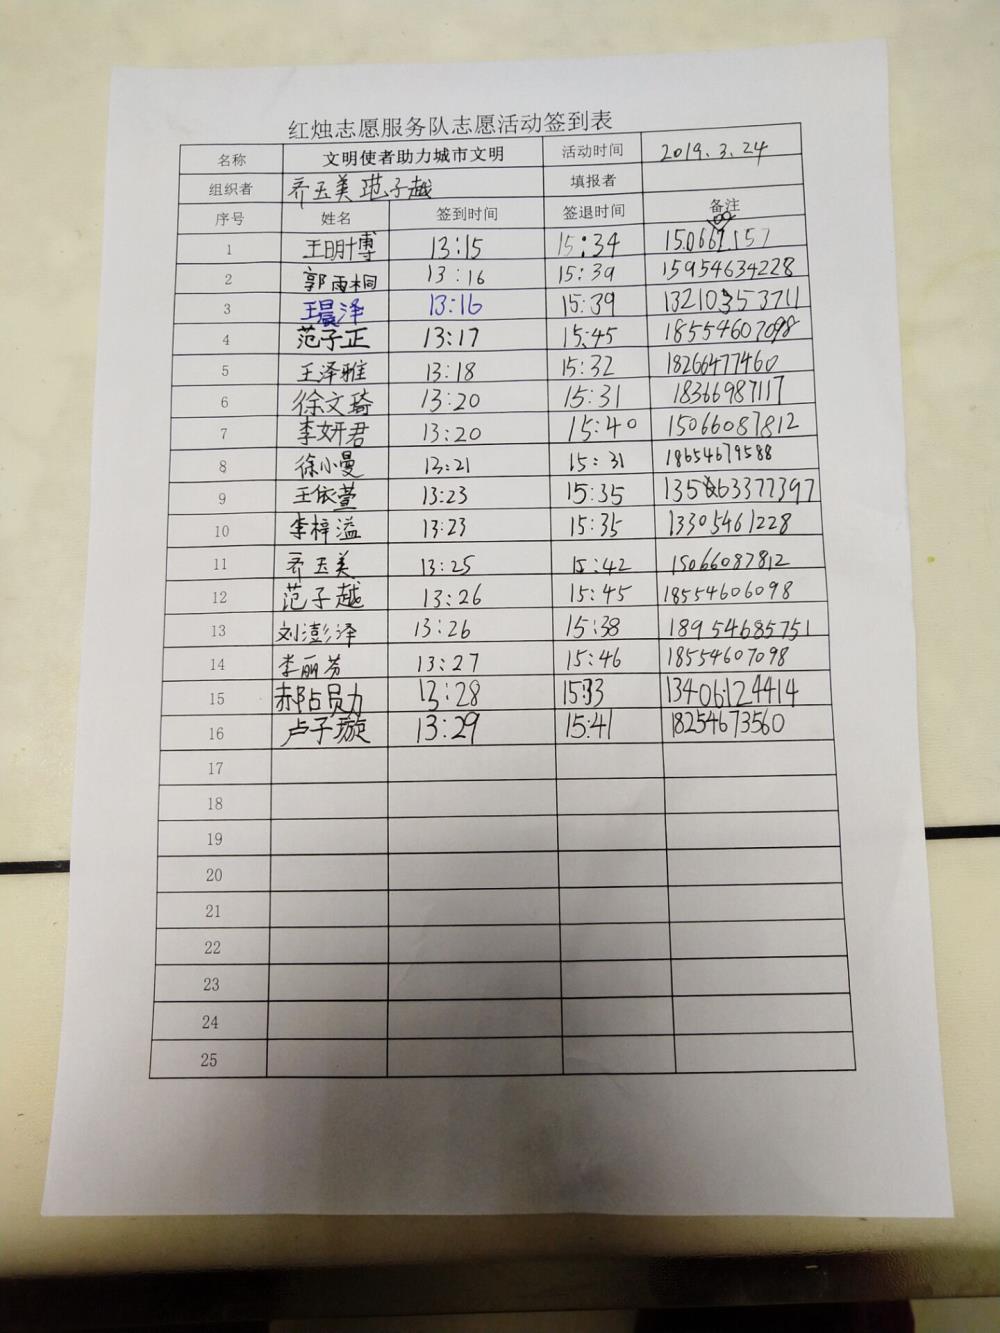 红烛志愿服务队志愿活动签到表
名称 文明使者助力城市文明 活动时间 2019.3.24
组织者 乔玉美 范子越 填报者
序号 姓名 签到时间 签退时间 备注
1 王明博 13:15 15:34
2 郭雨桐 13:16 15:39 15954634228
3 王晨泽 13:16 15:39 13210353711
4 范子正 13:17 15:45 18554607098
5 王泽雅 13:18 15:32 18266477460
6 徐文琦 13:20 15:31 18366987117
7 李妍君 13:20 15:40 15066087812
8 徐小曼 13:21 15:31 18654679588
9 王依萱 13:23 15:35
10 李梓溢 13:23 15:35 13305461228
11 乔玉美 13:25 15:42 15066087812
12 范子越 13:26 15:45 18554606098
13 刘澎泽 13:26 15:38 18954685751
14 李丽芳 13:27 15:46 18554607098
15 郝占员力 13:28 15:33 13406124414
16 卢子璇 13:29 15:41 18254673560
17
18
19
20
21
22
23
24
25